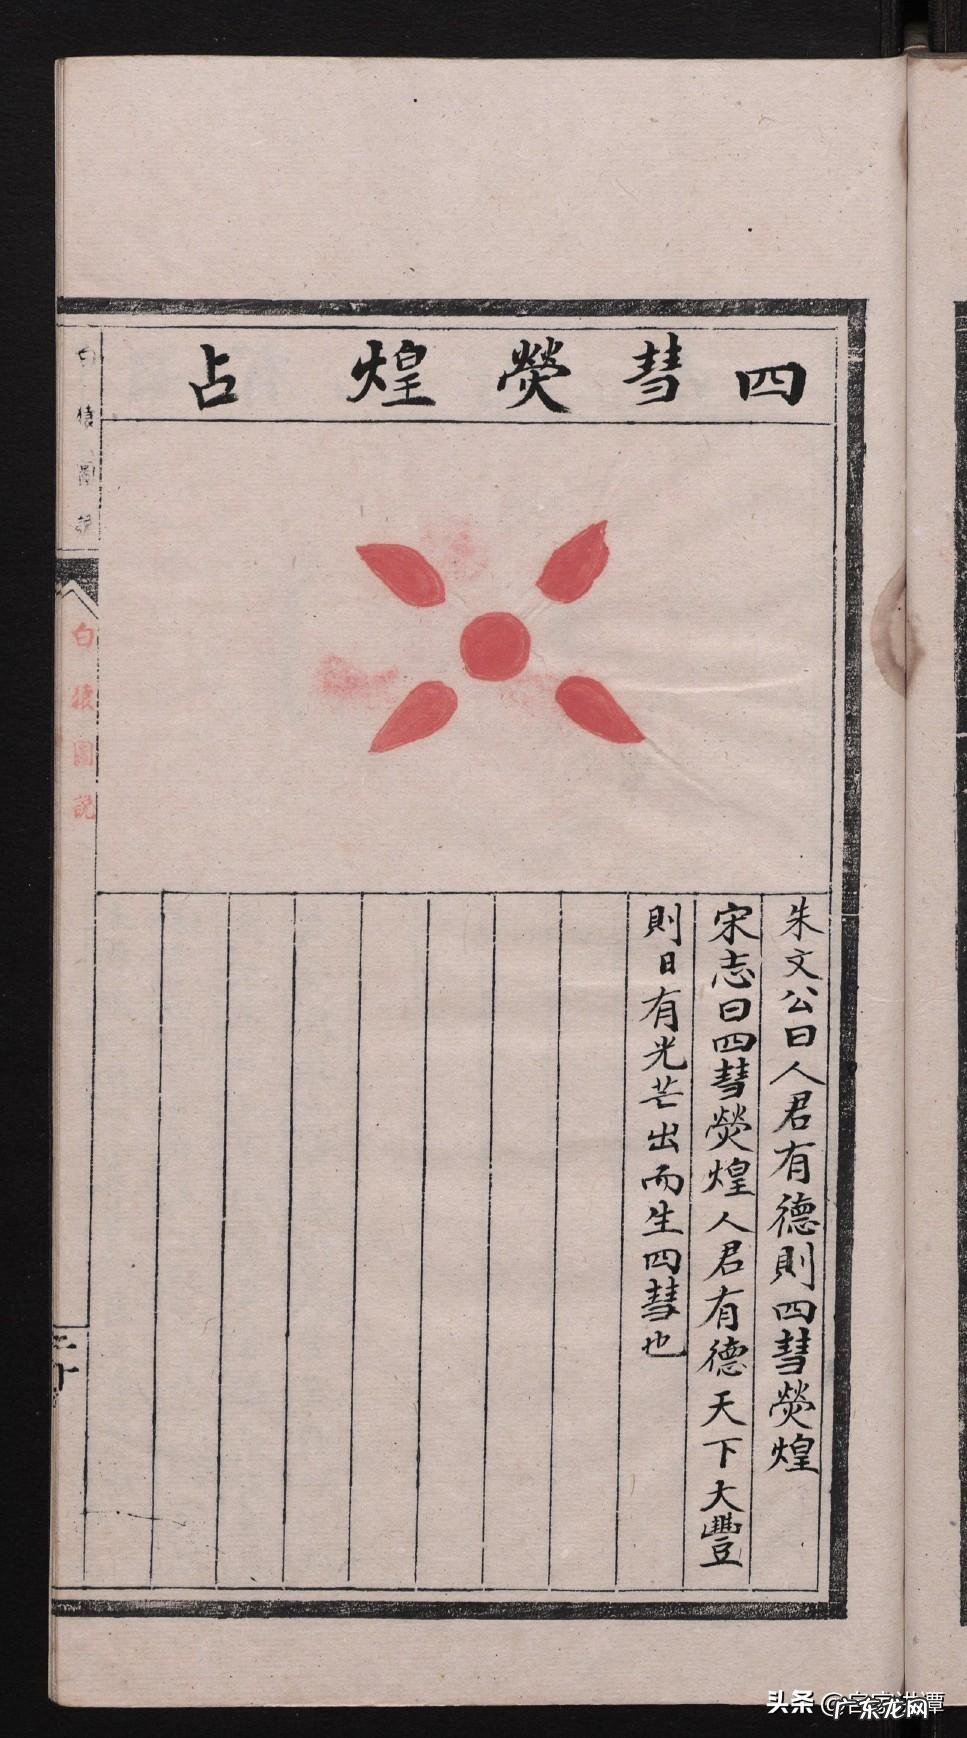 四彗熒煌占
朱文公曰人君有德則四彗熒煌
宋志曰四彗熒煌人君有德天下大豐
則日有光芒出而生四彗也
白猿圖說
白猿圖說
二十
头条
广东龙网